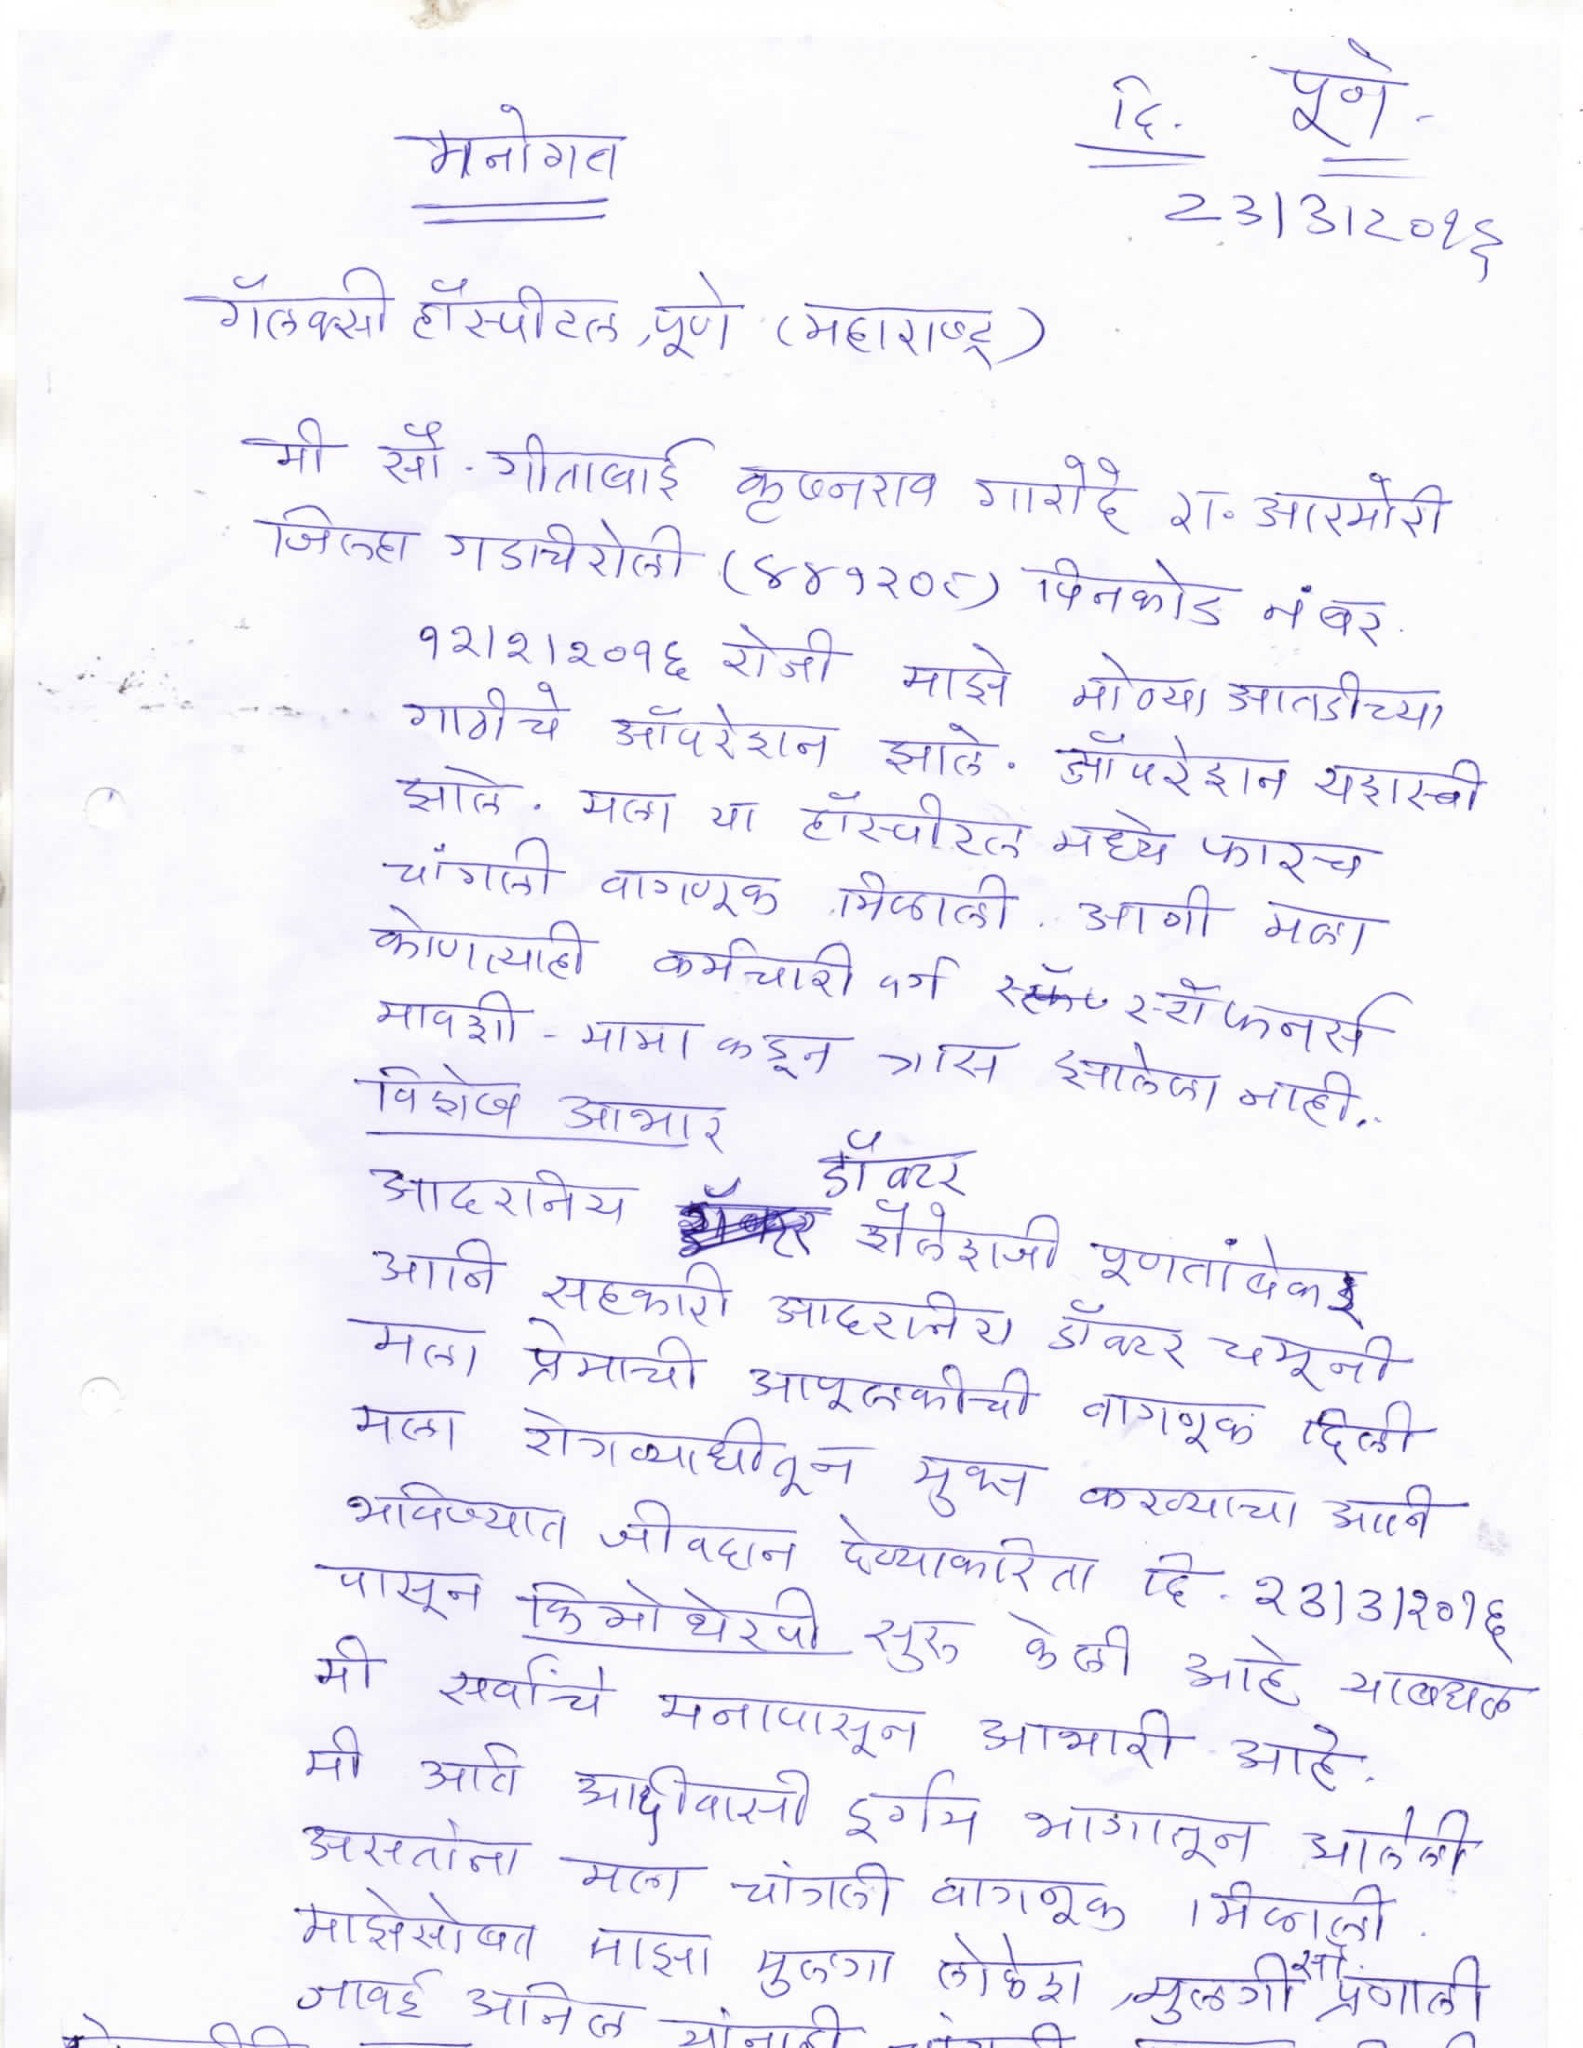 दि. पूणे -
मनोगत
23|3|2०१६
गॅलक्सी हॉस्पीटल, पूणे (महाराष्ट्र)
मी सौ. गीताबाई कृष्नराव गारोदे रा. आरमोरी
जिल्हा गडाचेरोली (४४१२०८) पिनकोड नंबर.
१२|२|२०१६ रोजी माझे मोठ्या आतडीच्या
गाठीचे ऑपरेशन झाले. ऑपरेशन यशस्वी
झाले. मला या हॉस्पीटल मध्ये फारच
चांगली वागणूक मिळाली. आणी मला
कोणत्याही कर्मचारी वर्ग स्टॉफनर्स
मावशी - मामा कडून त्रास झालेला नाही.
विशेष आभार
डॉक्टर
आदरानिय शैलेशजी पूणतांबेकर
आनि सहकारी आदरानिय डॉक्टर चमूनी
मला प्रेमाची आपूलकीची वागणूक दिली
मला रोगव्याधीतून मुक्त करण्याचा आनि
भविष्यात जीवदान देण्याकरिता दि. २३|३|२०१६
पासून किमोथेरपी सुरू केली आहे याबद्यल
मी सर्वांचे मनापासून आभारी आहे.
मी अति आदीवासी दुर्गम भागातून आलेली
असतांना मला चांगली वागणूक मिळाली.
माझेसोबत माझा मुलगा लोकेश, मुलगी सौ. प्रणाली
जावई अनिल यांनाही चांगली